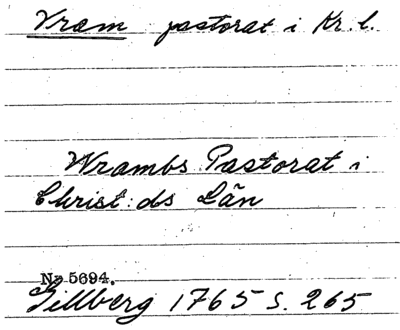 Vram pastorat i Kr. l.
Wrambs Pastorat i
Christ:ds Län
No 5694.
Gillberg 1765 s. 265